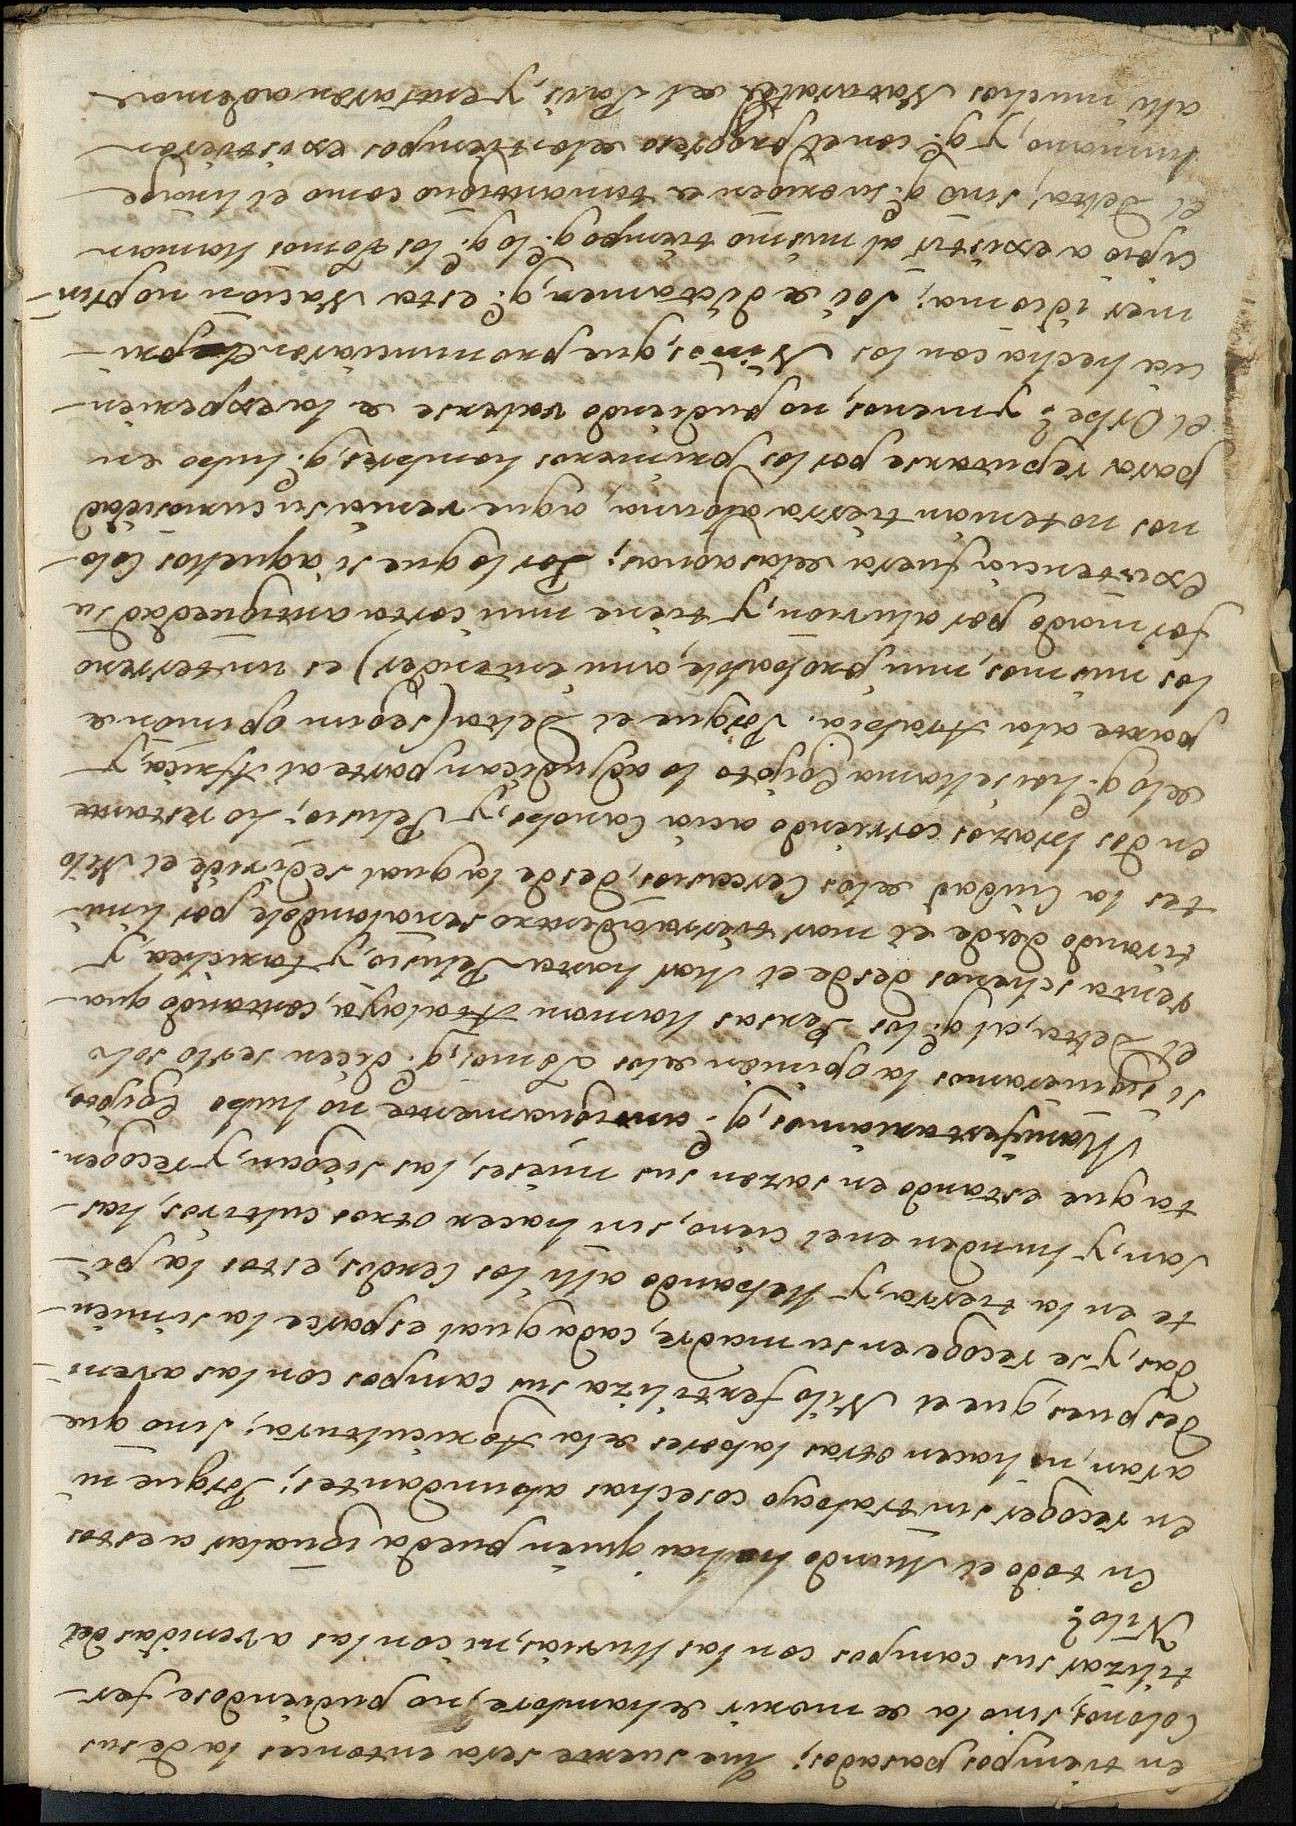 en tiempos pasados; que suerte sera entonces la de sus
Colonos, sino la de morir de hambre, no pudiendose fer-
tilizar sus campos con las lluvias, ni con las avenidas del
Nilo?
En todo el Mundo no hai quien pueda igualar a estos
en recoger sin trabajo cosechas abundantes; Porque ni
aran, ni hacen otras labores de la Agricultura; sino que
despues, que el Nilo fertiliza sus campos con las aveni-
das, y se recoge en su madre, cada qual esparce la simien-
te en la tierra, y llebando alli los Cerdos, estos la pi-
san, y hunden en el cieno, sin hacer otros cultivos, has-
ta que estando en sazon sus mieses, las siegan, y recogen.
Manifestariamos, q.e antiguamente no hubo Egipto,
si siguieramos la opinion de los Jonios, q.e dicen serlo solo
el Delta, al q.e los Persas llaman Atalaya, contando qua-
renta schenos desde el Mar hasta Pelusio, y Tarichea, y
tirando desde el mar tierra adentro señalandole por limi-
tes la Ciudad de los Cercasios, desde la qual se divide el Nilo
en dos brazos corriendo acia Canobo, y Pelusio; Lo restante
de lo q.e hoi se llama Egipto lo adjudican parte al Africa, y
parte a la Arabia. Porque el Delta (segun opinion de
los mismos, mui probable, a mi entender) es un terreno
formado por aluvion, y tiene mui corta antiguedad su
existencia fuera de las aguas; Por lo que si aquellos Colo-
nos no tenian tierra alguna, a que venia su curiosidad
para reputarse por los primeros hombres, q.e hubo en
el Orbe? y menos, no pudiendo valerse de la experien-
cia hecha con los Niños, que pronunciaron el pri-
mer idioma; Soi de dictamen, q.e esta Nacion no prin-
cipió a existir al mismo tiempo q.e lo q.e los Jonios llaman
el Delta, sino q.e su origen es tan antiguo como el linage
humano, y q.e con el progreso de los tiempos existieron
alli muchos Naturales del Pais, y entraron ademas